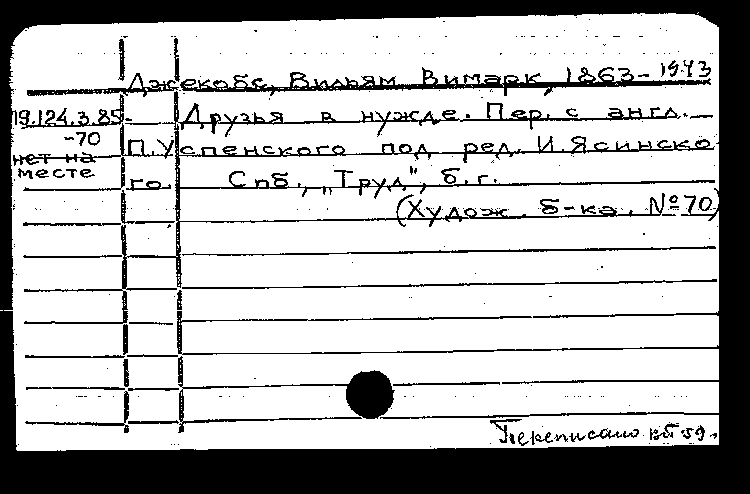 Джекобс, Вильям Вимарк, 1863-1943
19.124.3.85-
-70
нет на
месте
Друзья в нужде. Пер. с англ.
П.Успенского под ред. И.Ясинско
го. Спб., „Труд", б.г.
(Худож. б-ка. №70)
Переписано